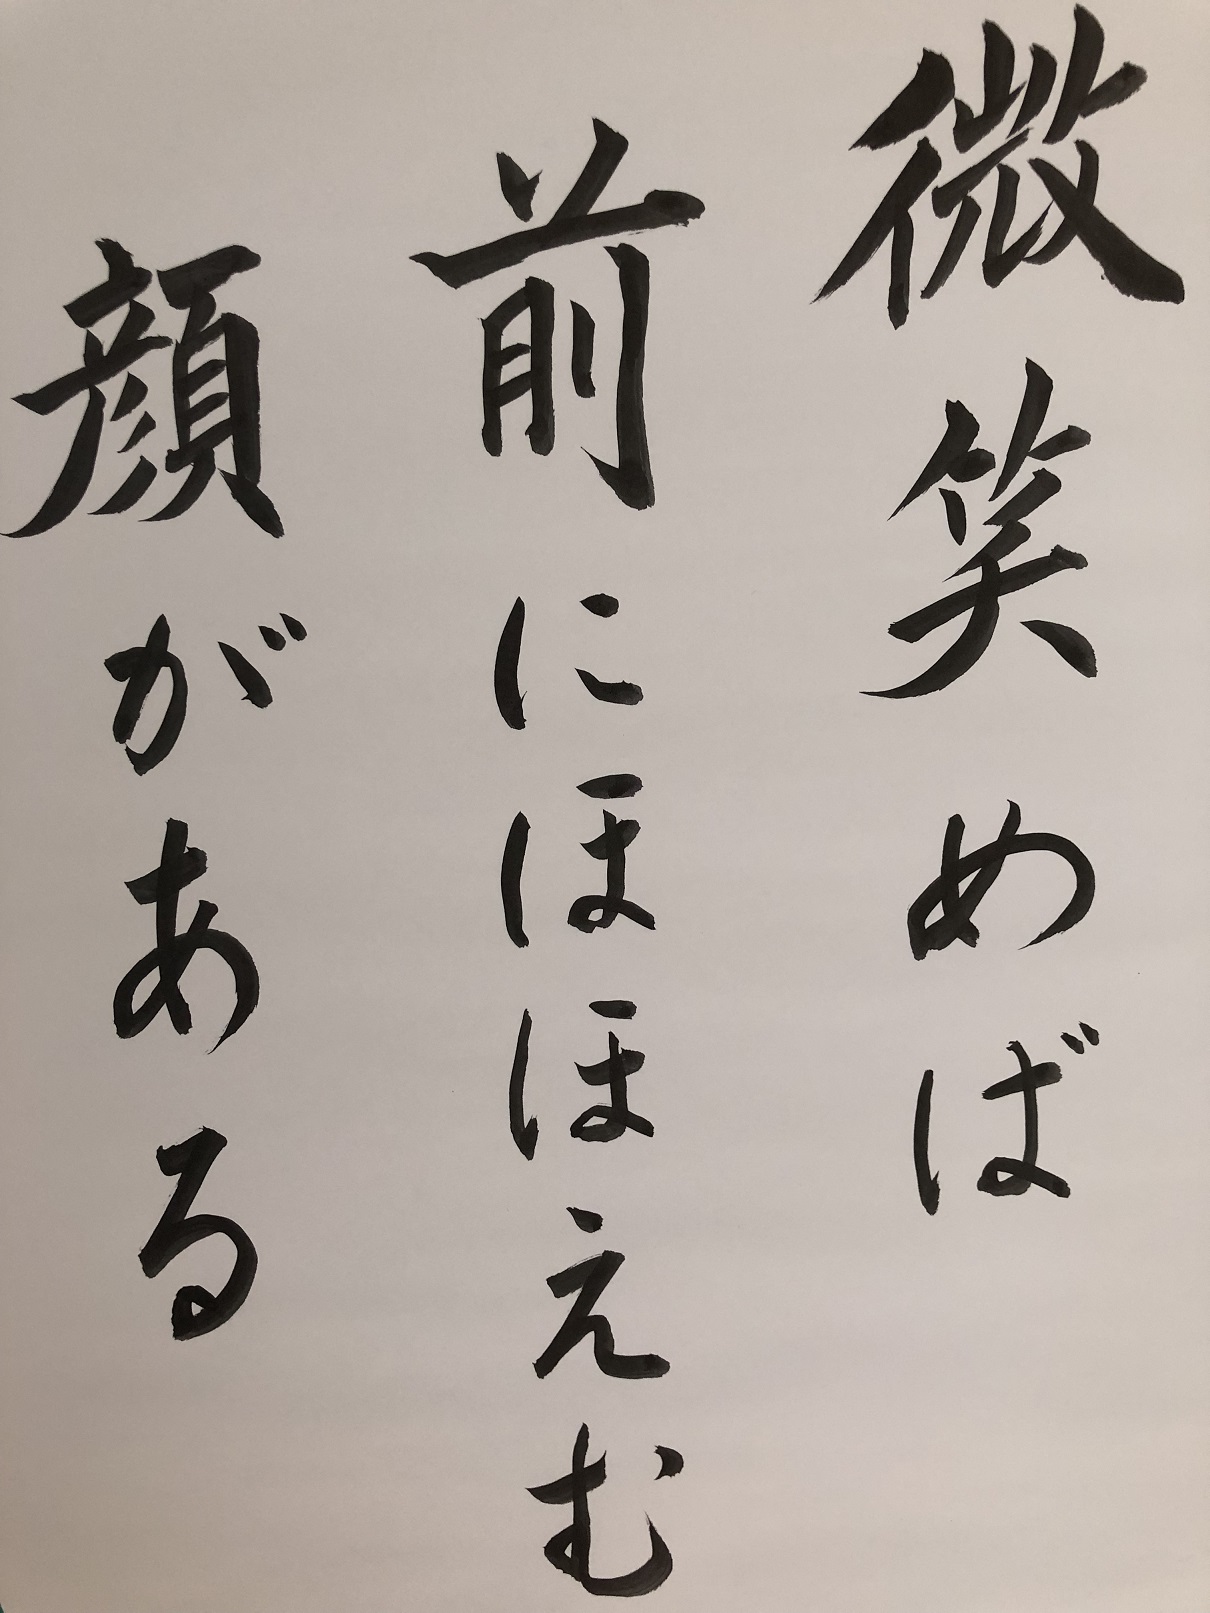 微笑めば
前にほほえむ
顔がある